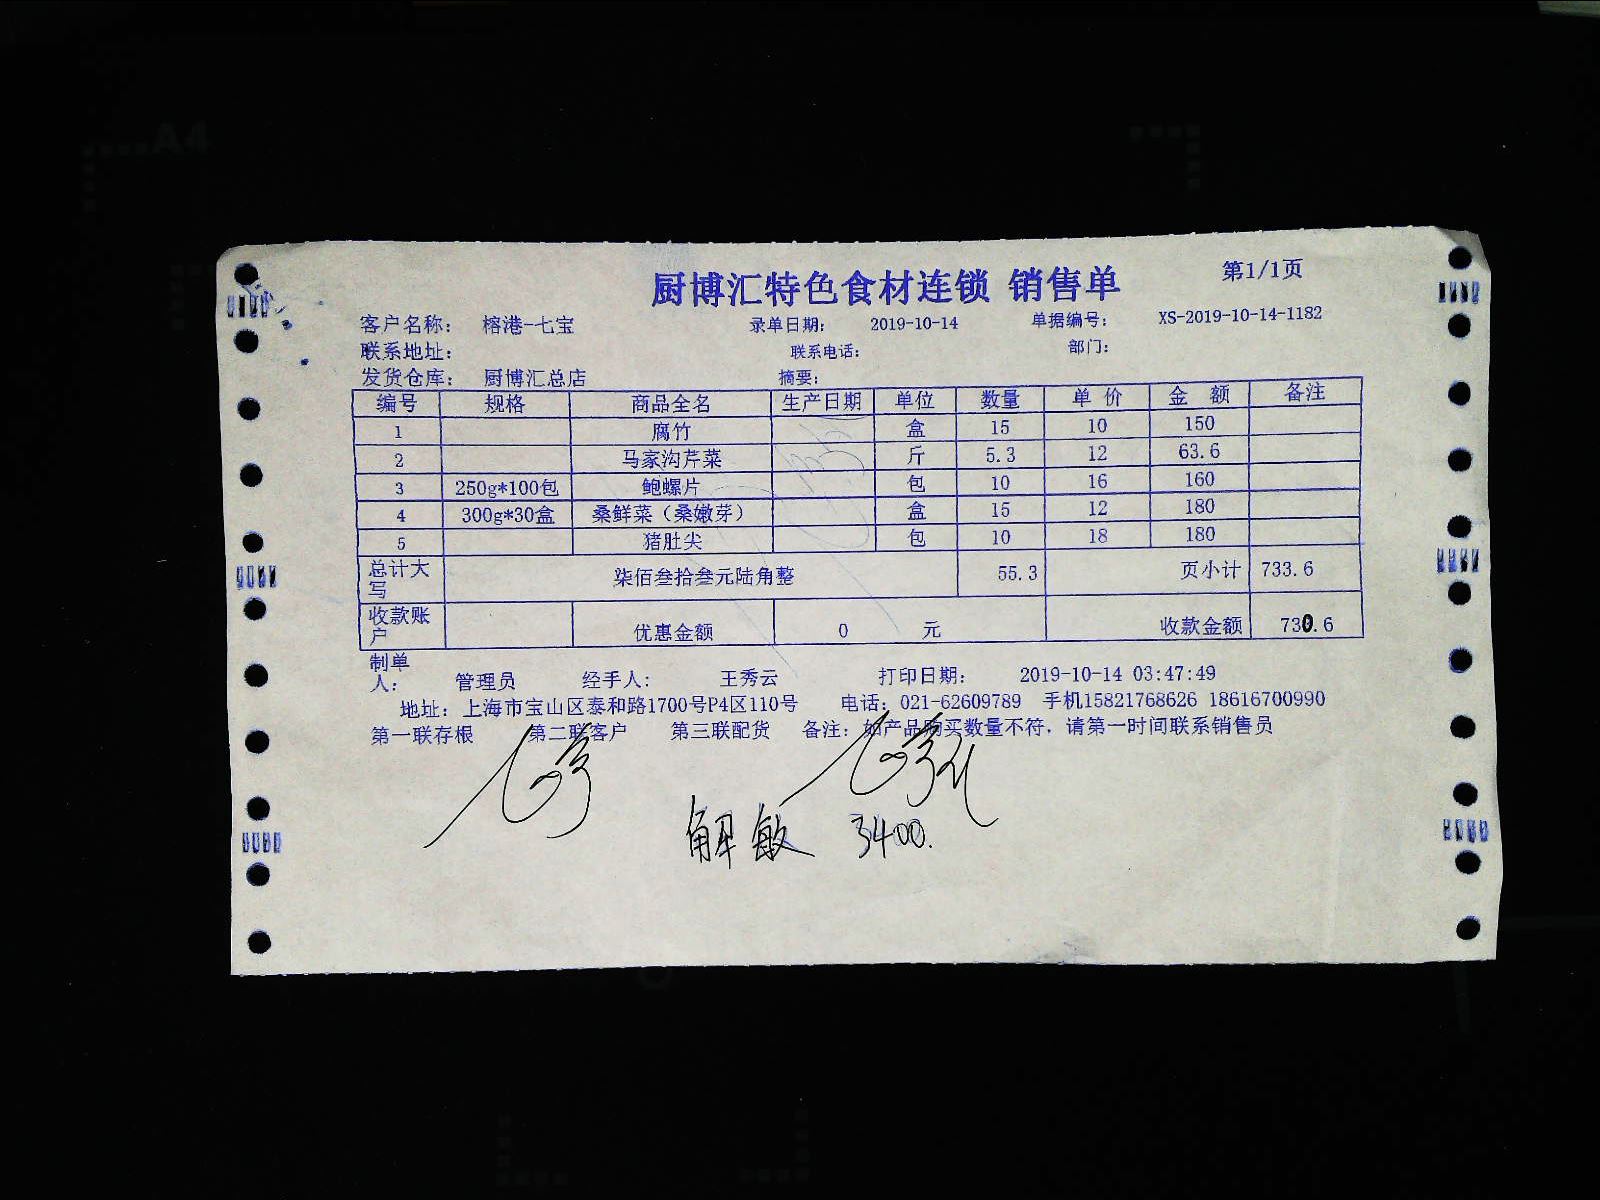 厨博汇特色食材连锁 销售单 第1/1页
客户名称： 榕港-七宝 录单日期： 2019-10-14 单据编号： XS-2019-10-14-1182
联系地址： 联系电话： 部门：
发货仓库： 厨博汇总店 摘要：
编号 规格 商品全名 生产日期 单位 数量 单 价 金 额 备注
1 腐竹 盒 15 10 150
2 马家沟芹菜 斤 5.3 12 63.6
3 250g*100包 鲍螺片 包 10 16 160
4 300g*30盒 桑鲜菜（桑嫩芽） 盒 15 12 180
5 猪肚尖 包 10 18 180
总计大写 柒佰叁拾叁元陆角整 55.3 页小计 733.6
收款账户 优惠金额 0 元 收款金额 730.6
制单人： 管理员 经手人： 王秀云 打印日期： 2019-10-14 03:47:49
地址： 上海市宝山区泰和路1700号P4区110号 电话：021-62609789 手机15821768626 18616700990
第一联存根 第二联客户 第三联配货 备注：如产品购买数量不符，请第一时间联系销售员
解敏 3400.